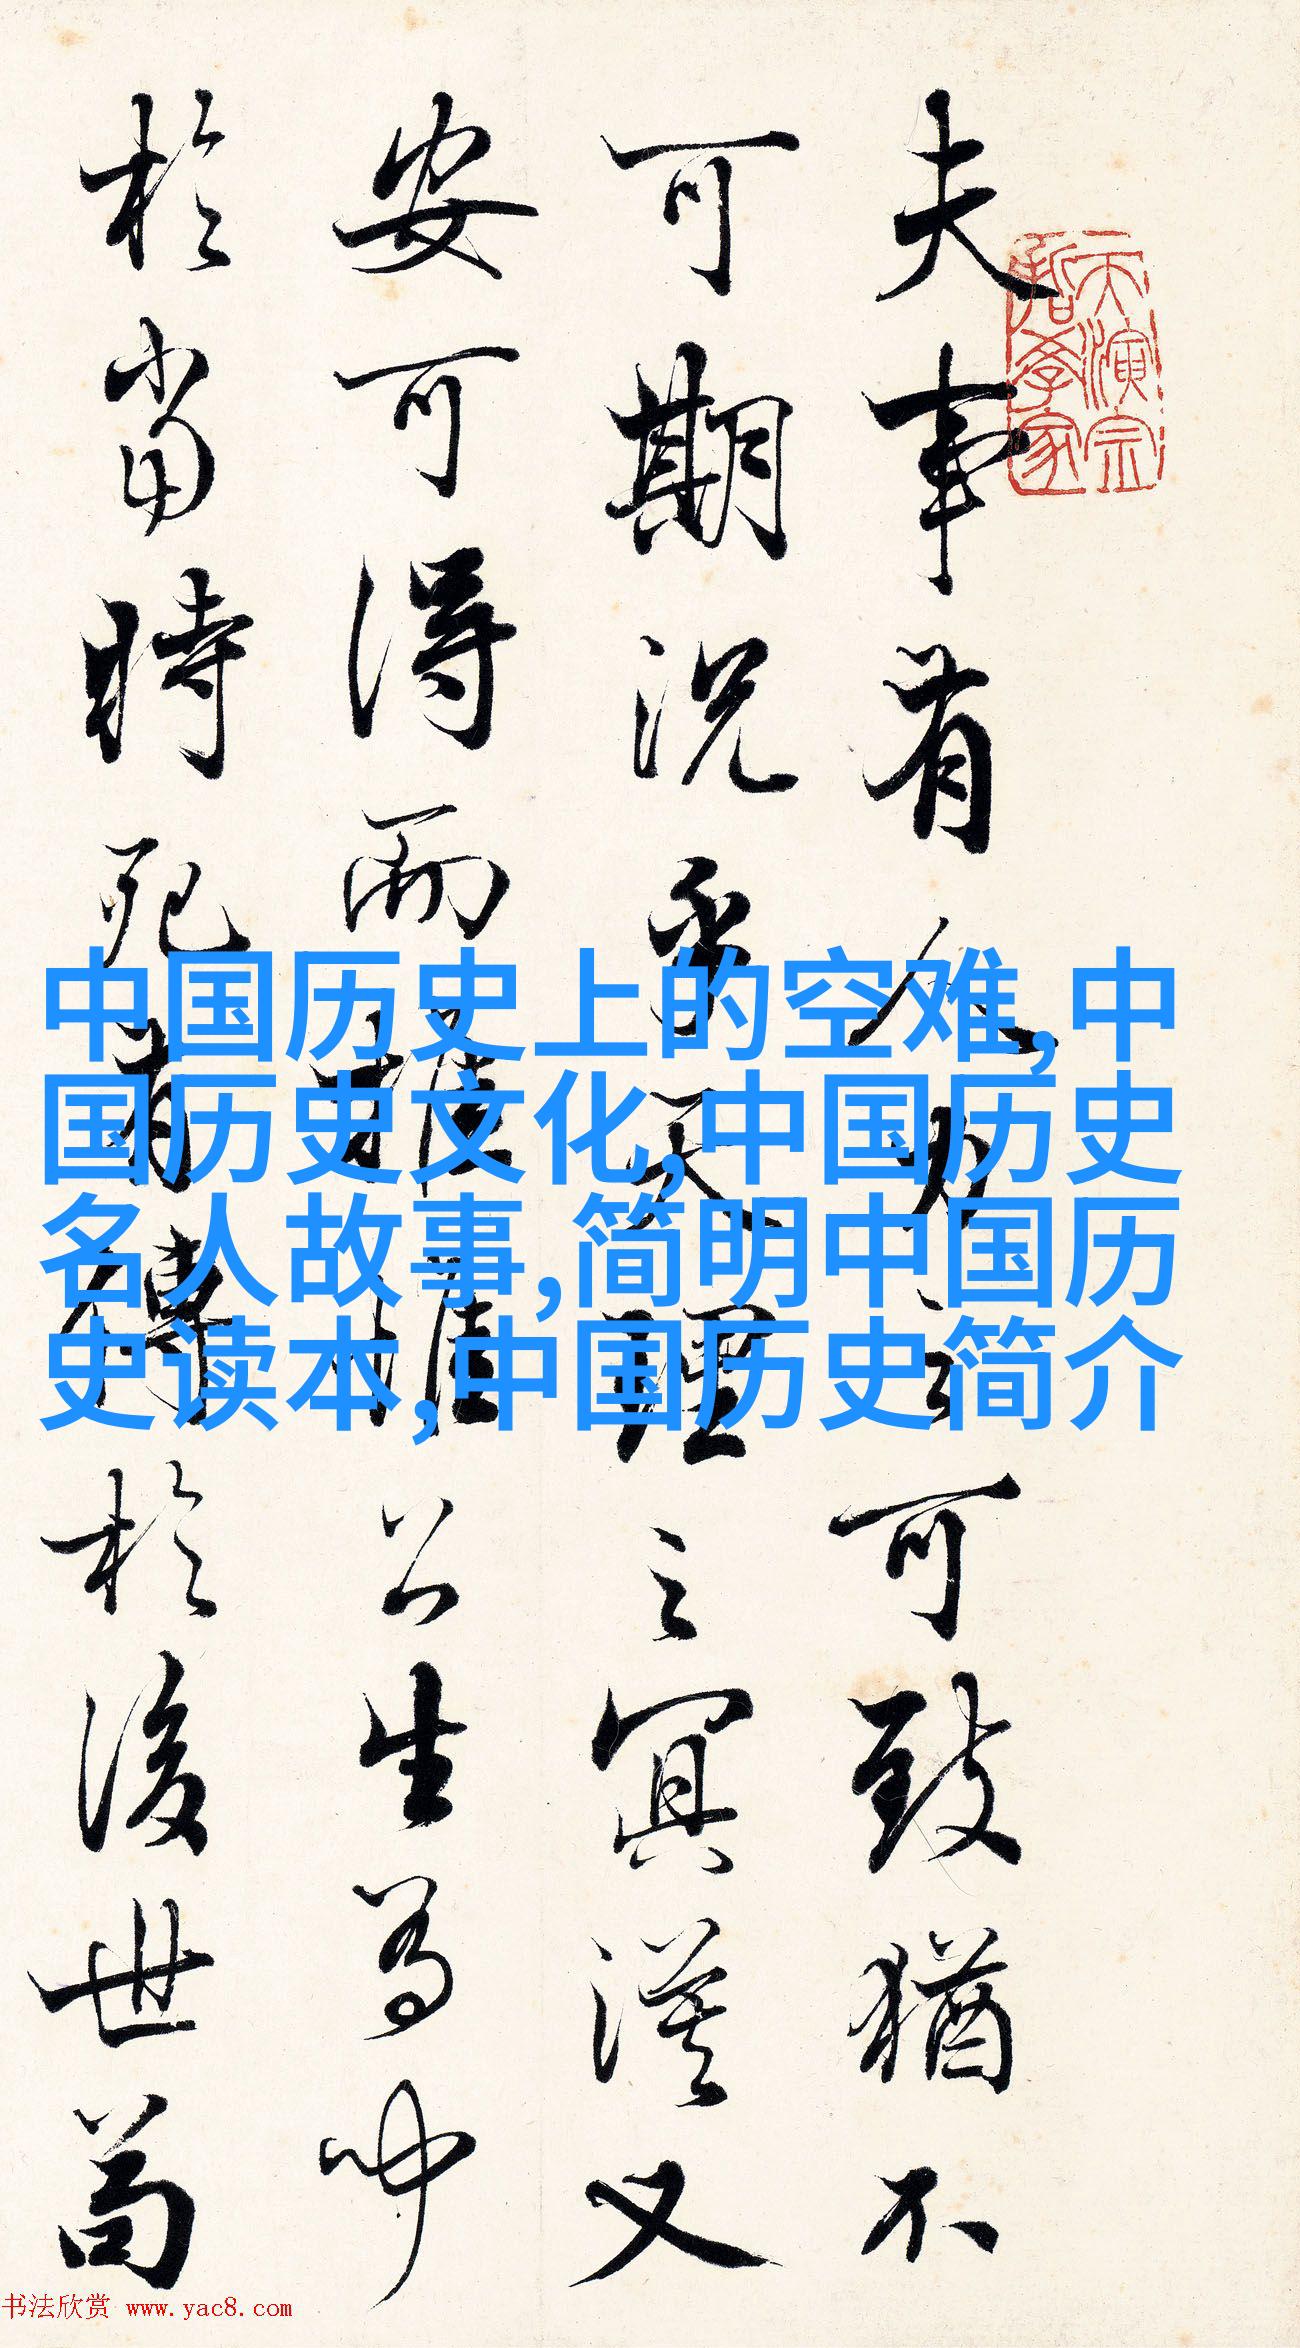 天演宗
哲學家
夫事有人力之可致猶不
可期況乎天理之冥漠又
安可得而推惟公生有聞
於當時死有傳於後世苟
中国历史上的空难,中
国历史文化,中国历史
名人故事,简明中国历
史读本,中国历史简介
书法欣赏 www.yac8.com